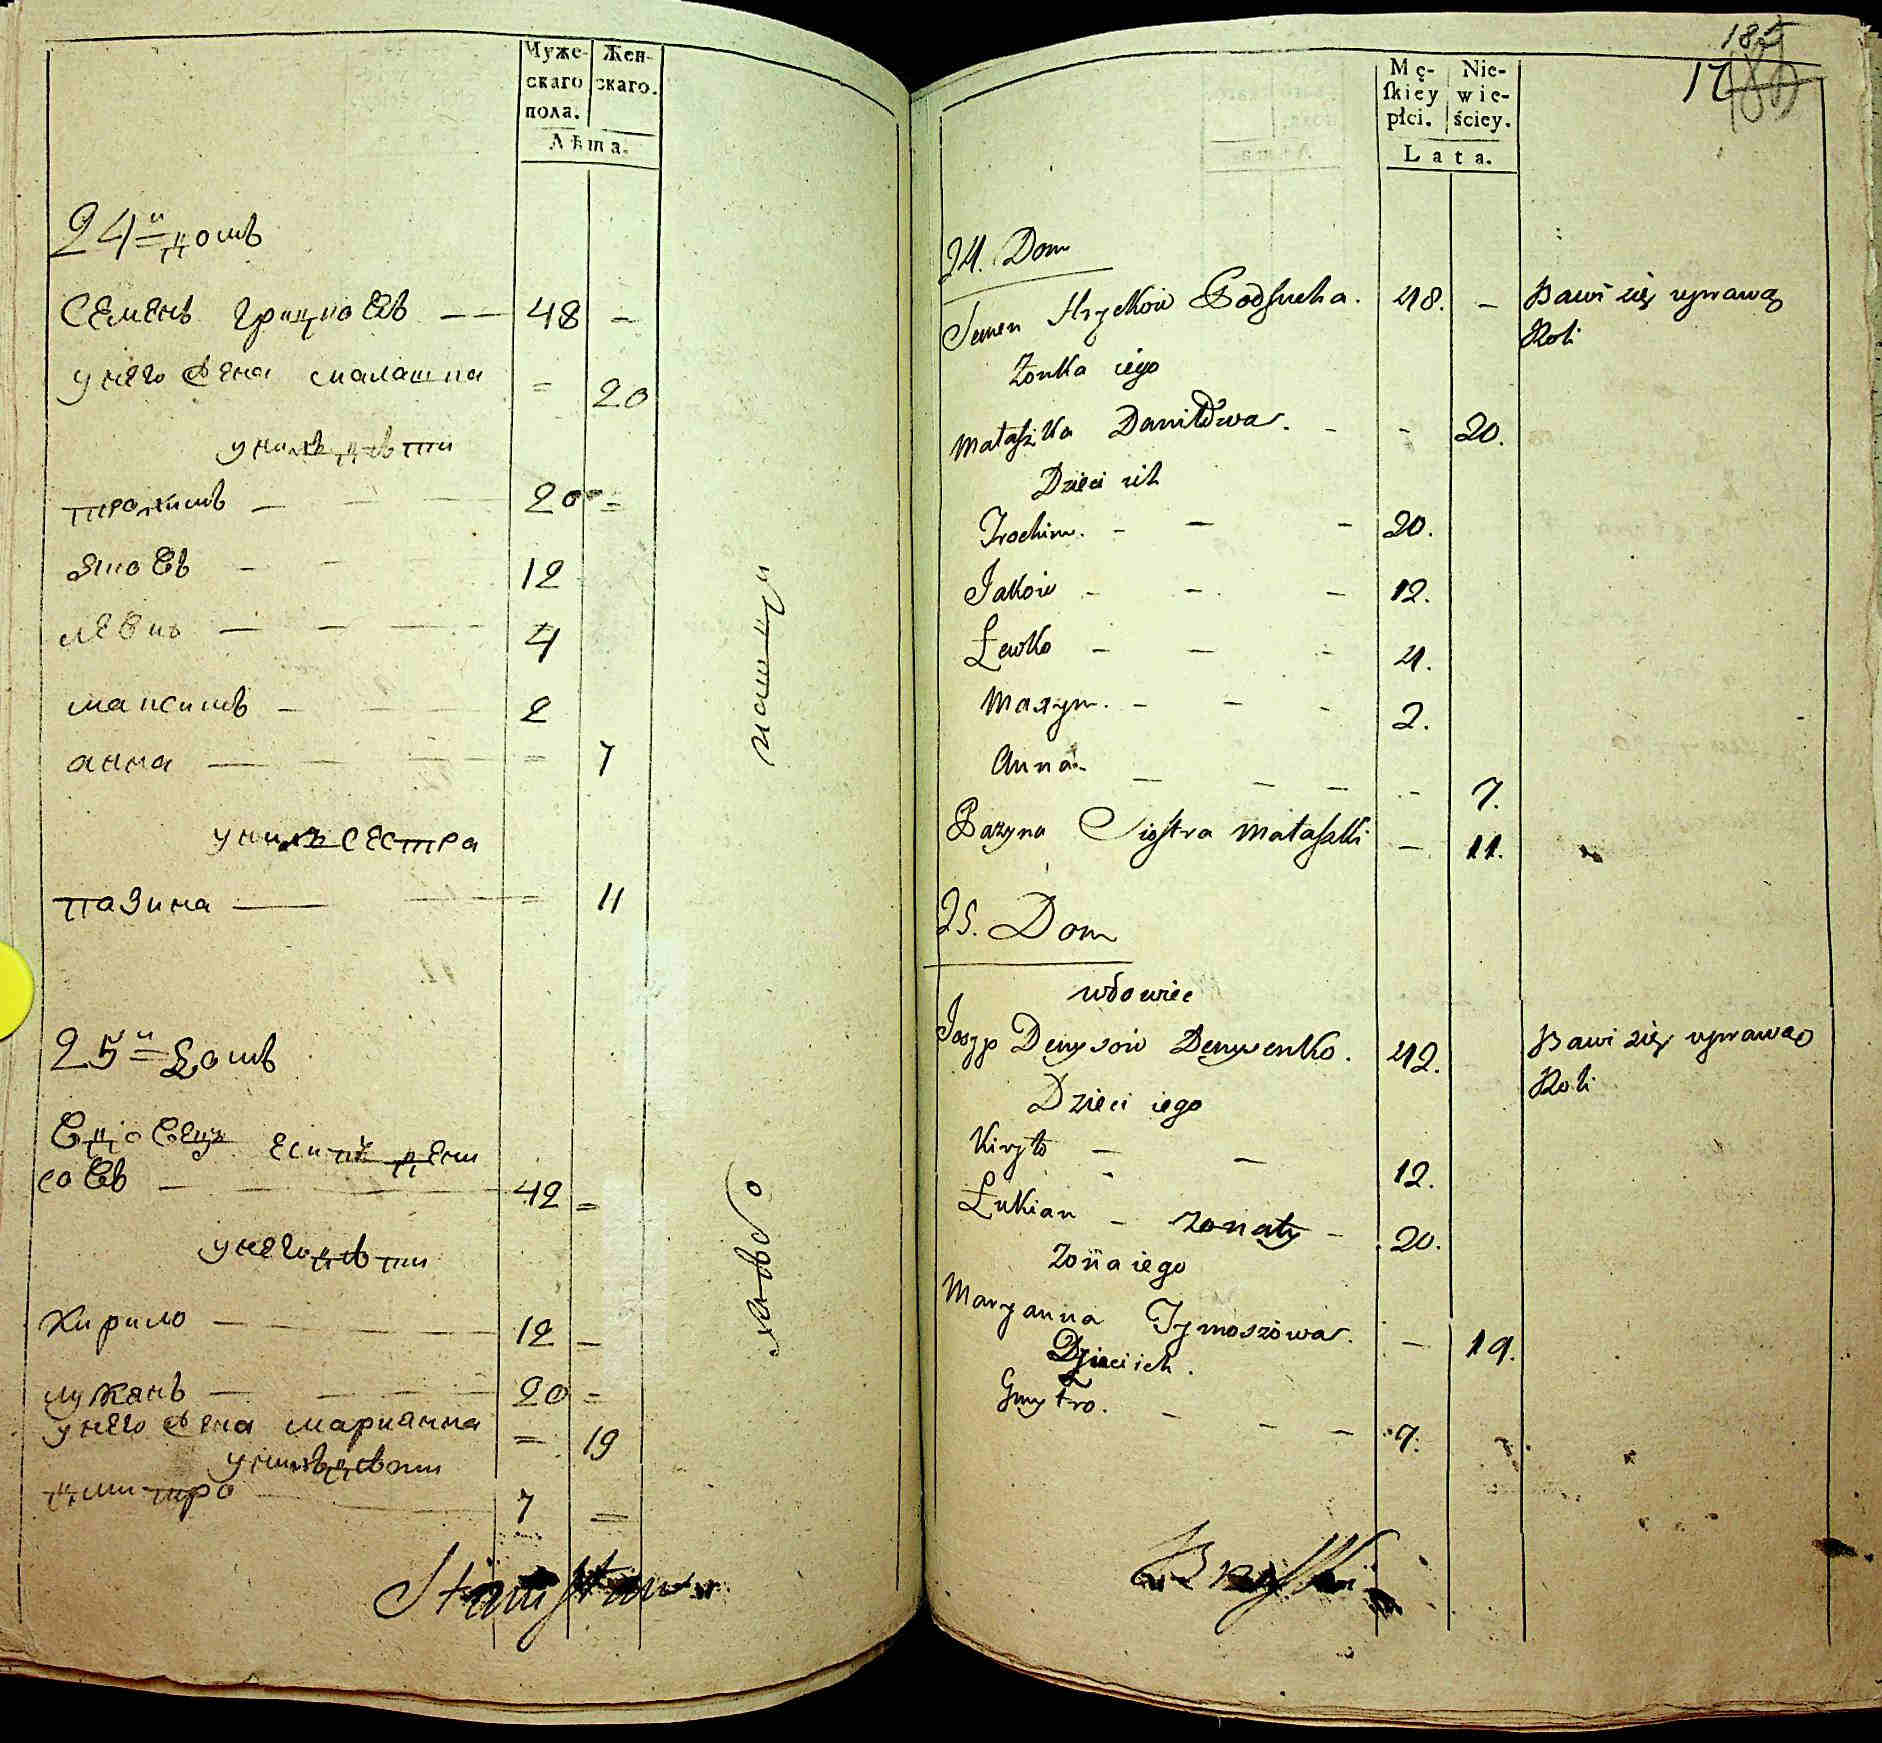 Муже-
скаго
пола.
Жен-
скаго.
Лѣта.
24й домъ
семенъ грицковъ — — 48 –
у него жена малашка = 20
у нихъ дѣти
трохимъ — 20 =
яковъ — 12
левко — 4
максимъ — 2
анна — = 7
у нихъ сестра
пазина — = 11
25й домъ
вдовецъ есипъ дени
совъ — 42 =
у него дѣти
кирило — 12 –
лукянъ — 20 =
у него жена марианна = 19
у нихъ дѣти
дмитро — 7 =
пашци
хлѣбо
Stanisław
Mę-
skiey
płci.
Nie-
wie-
ściey.
Lata.
185
17
24. Dom
Semen Hryckow Podsucha. 48. – Bawi się uprawą
Roli
Żonka iego
Małaszka Daniłowa. - - 20.
Dzieci ich
Trochim. - - - 20.
Jakow - - - 12.
Lewko - - - 4.
Maxym. - - - 2.
Anna - - - - 7.
Pazyna Siostra Małaszki – 11.
25. Dom
wdowiec
Josyp Denysow Denysenko. 42. Bawi się uprawą
Roli
Dzieci iego
Kiryło - - 12.
Łukian - żonaty - 20.
Żona iego
Maryanna Tymoszowa. – 19.
Dzieci ich.
Gmytro. - - - 7.